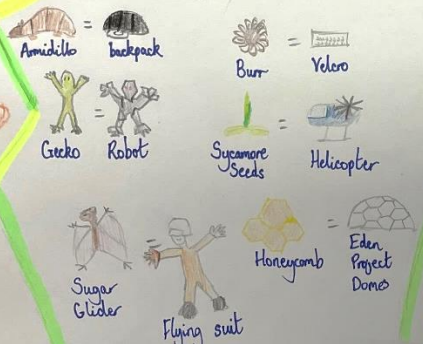 Armidillo = backpack
Burr = Velcro
Gecko = Robot
Sycamore
Seeds = Helicopter
Sugar
Glider = Flying suit
Honeycomb = Eden
Project
Domes